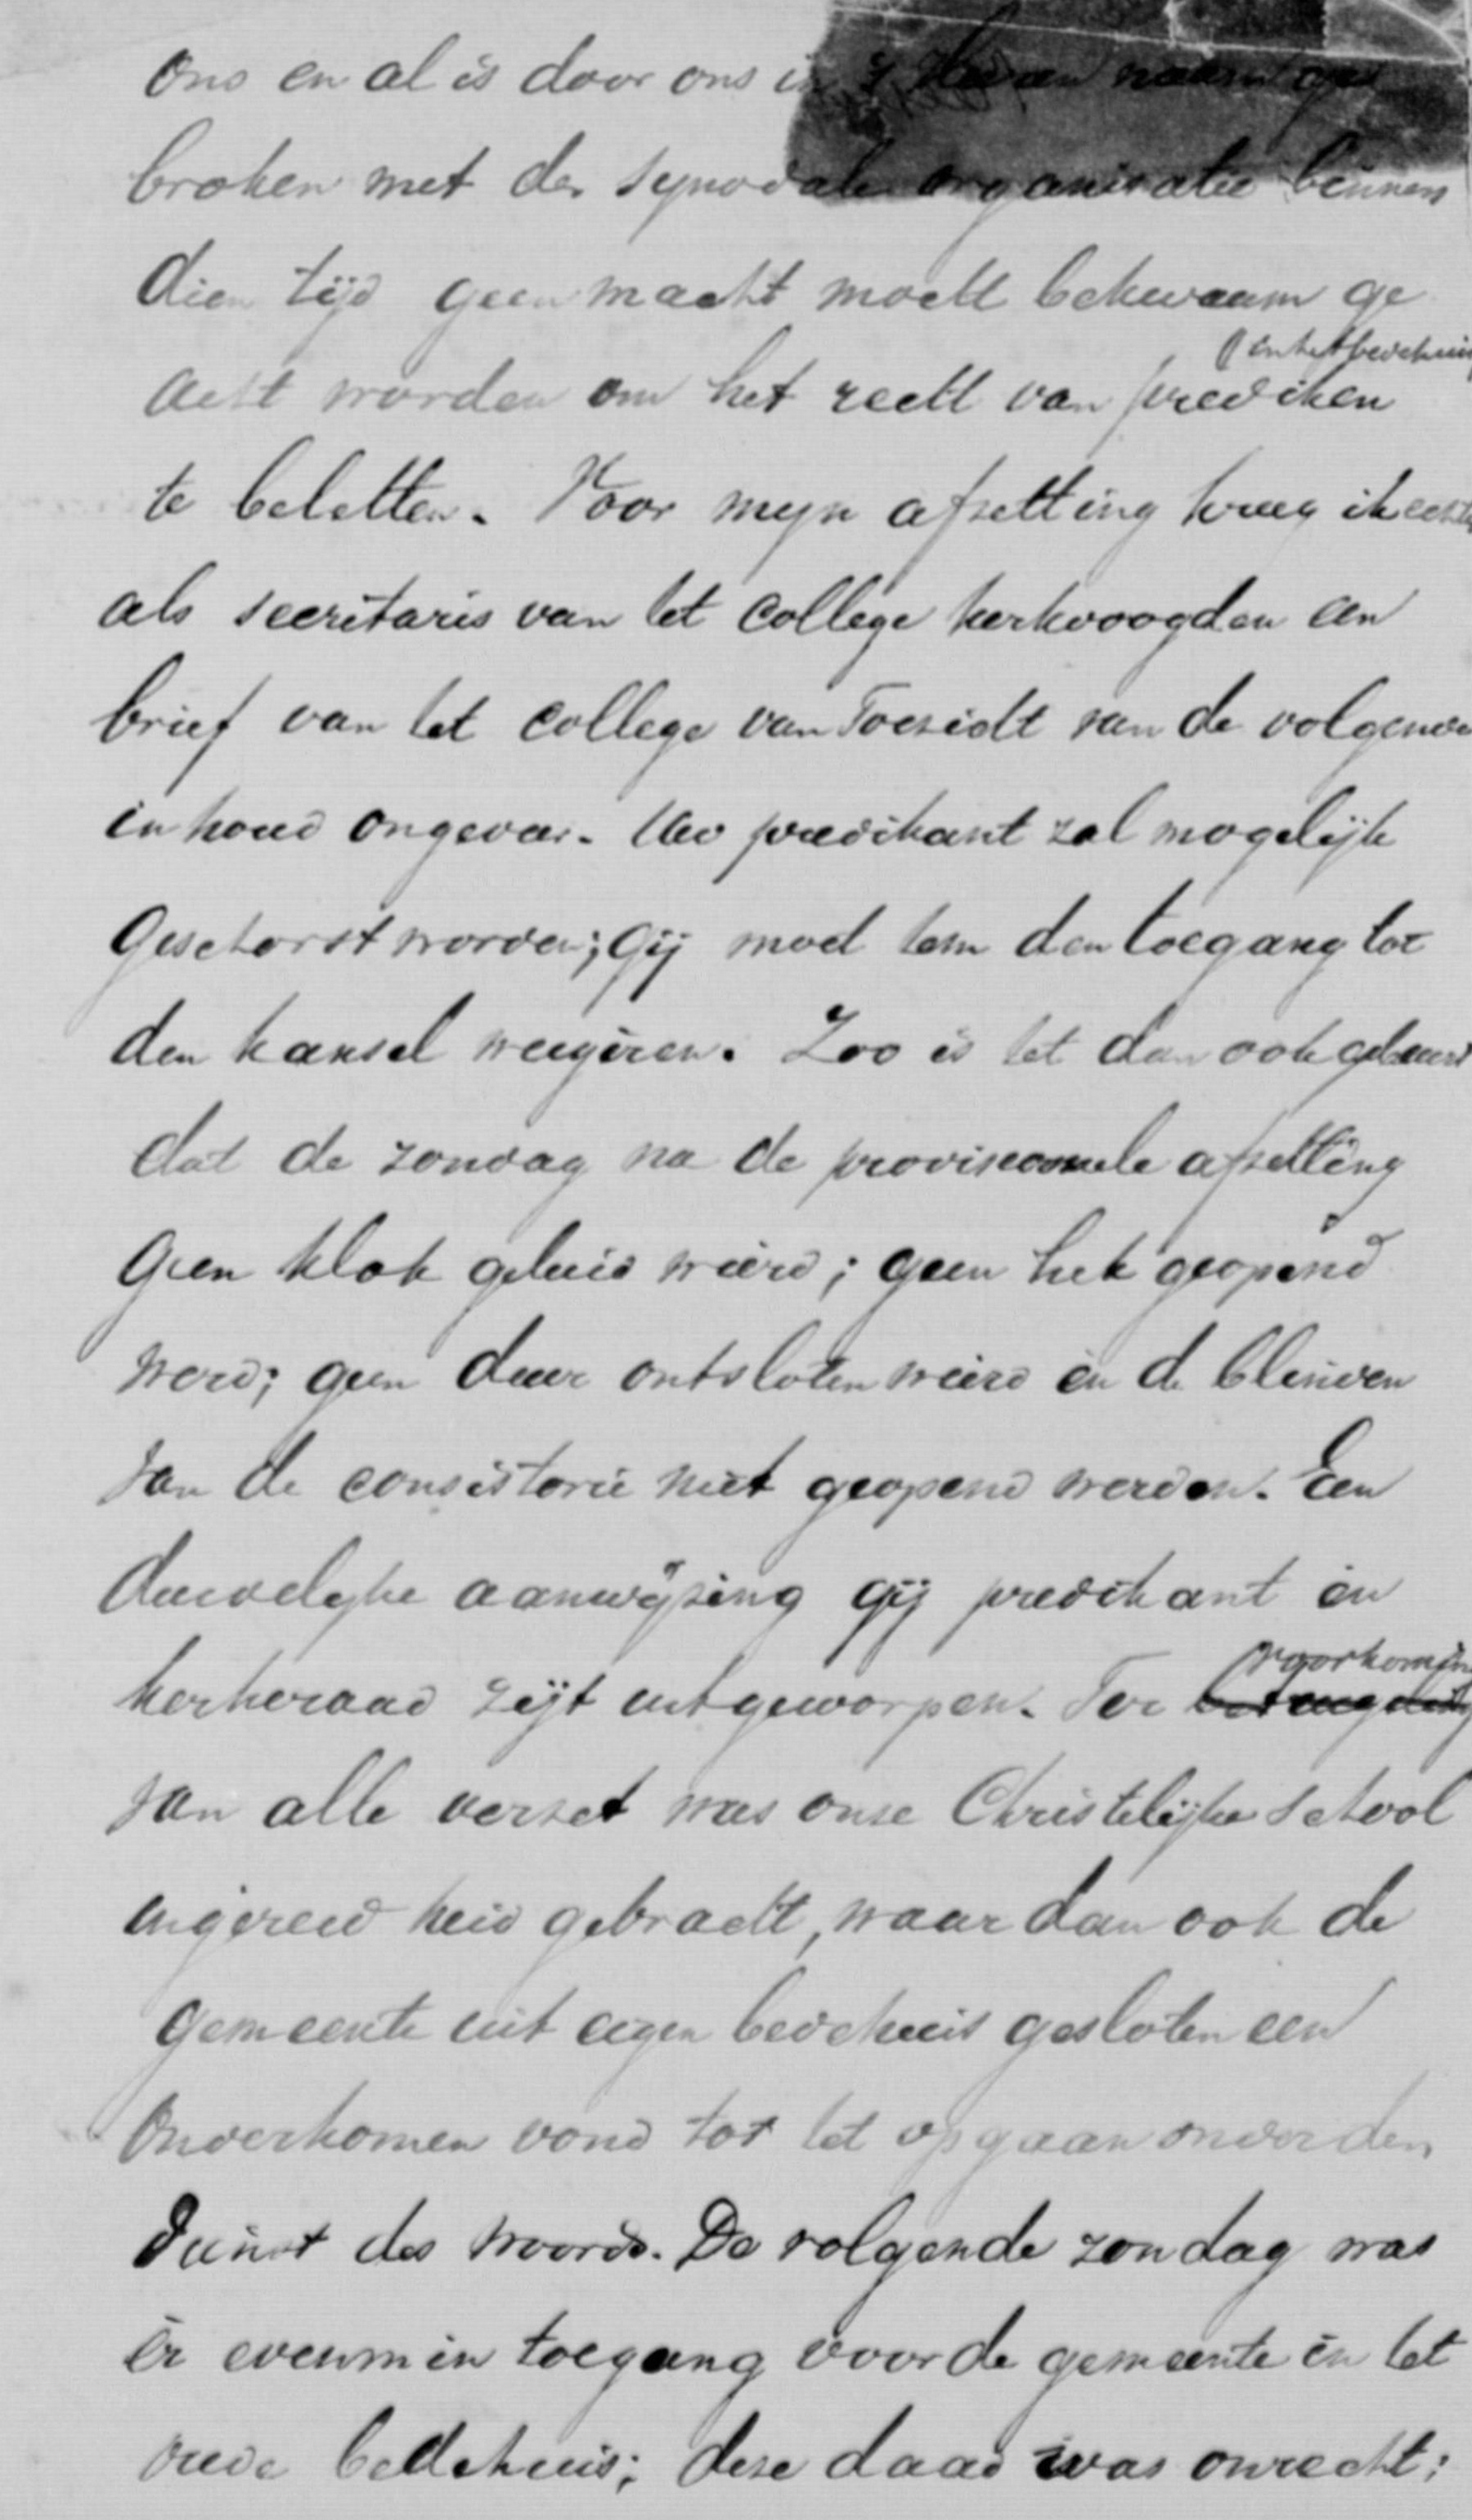 ons en al is door ons in 's Heeren naam ge
broken met de synodale organisatie binnen
dien tijd geen macht mocht bekwaam ge
(in het bedehuis
acht worden om het recht van prediken
te beletten. Voor mijn afzetting kreeg ik eerst
als secretaris van het college kerkvoogden een
brief van het college van Toezicht van de volgende
inhoud ongeveer. Uw predikant zal mogelijk
geschorst worden; gij moet hem den toegang tot
den kansel weigeren. Zoo is het dan ook gebeurd
dat de zondag na de provisioneele afzetting
geen klok geluid werd; geen hek geopend
werd; geen deur ontsloten werd en de blinden
van de consistorie niet geopend werden. Een
duidelijke aanwijzing gij predikant en
voorkoming
kerkeraad zijt uitgeworpen. Ter
van alle verzet was onze Christelijke School
in gereedheid gebracht, waar dan ook de
gemeente uit eigen bedehuis gesloten een
onderkomen vond tot het opgaan onder den
dienst des woords. De volgende zondag was
er evenmin toegang voor de gemeente in het
oude bedehuis; deze daad was onrecht;